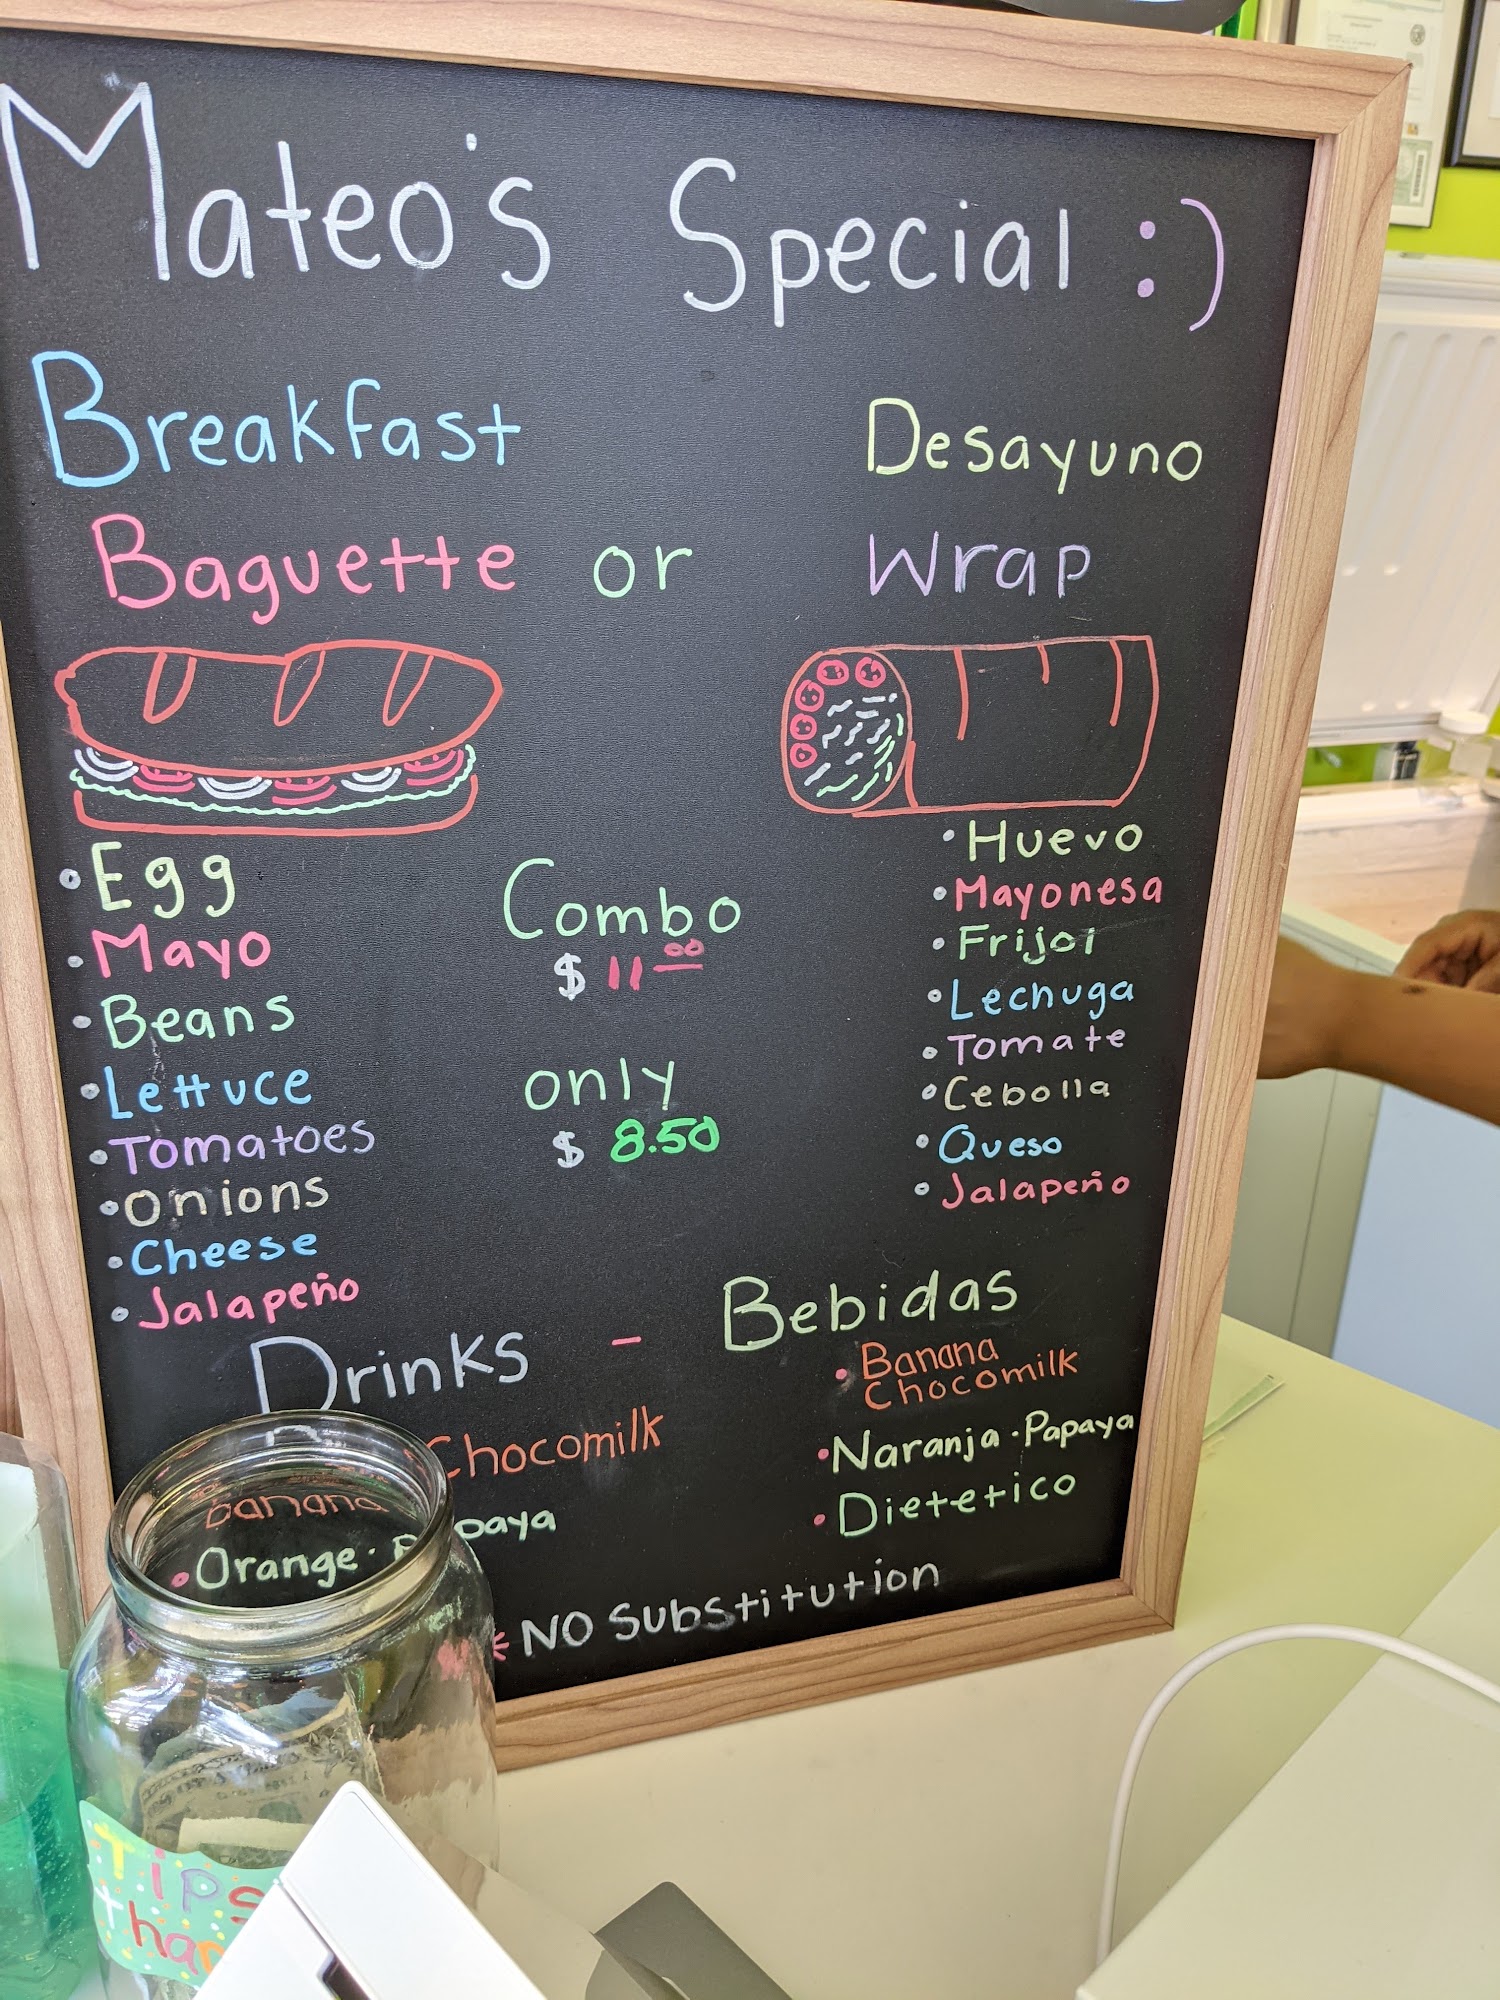 Mateo's Special :)
Breakfast
Desayuno
Baguette or Wrap
• Egg
• Mayo
• Beans
• Lettuce
• Tomatoes
• Onions
• Cheese
• Jalapeño
Combo
$ 11.00
only
$ 8.50
• Huevo
• Mayonesa
• Frijol
• Lechuga
• Tomate
• Cebolla
• Queso
• Jalapeño
Drinks - Bebidas
Chocomilk
Banana
• Orange •
• Banana
Chocomilk
• Naranja • Papaya
• Dietetico
* NO Substitution
Tips